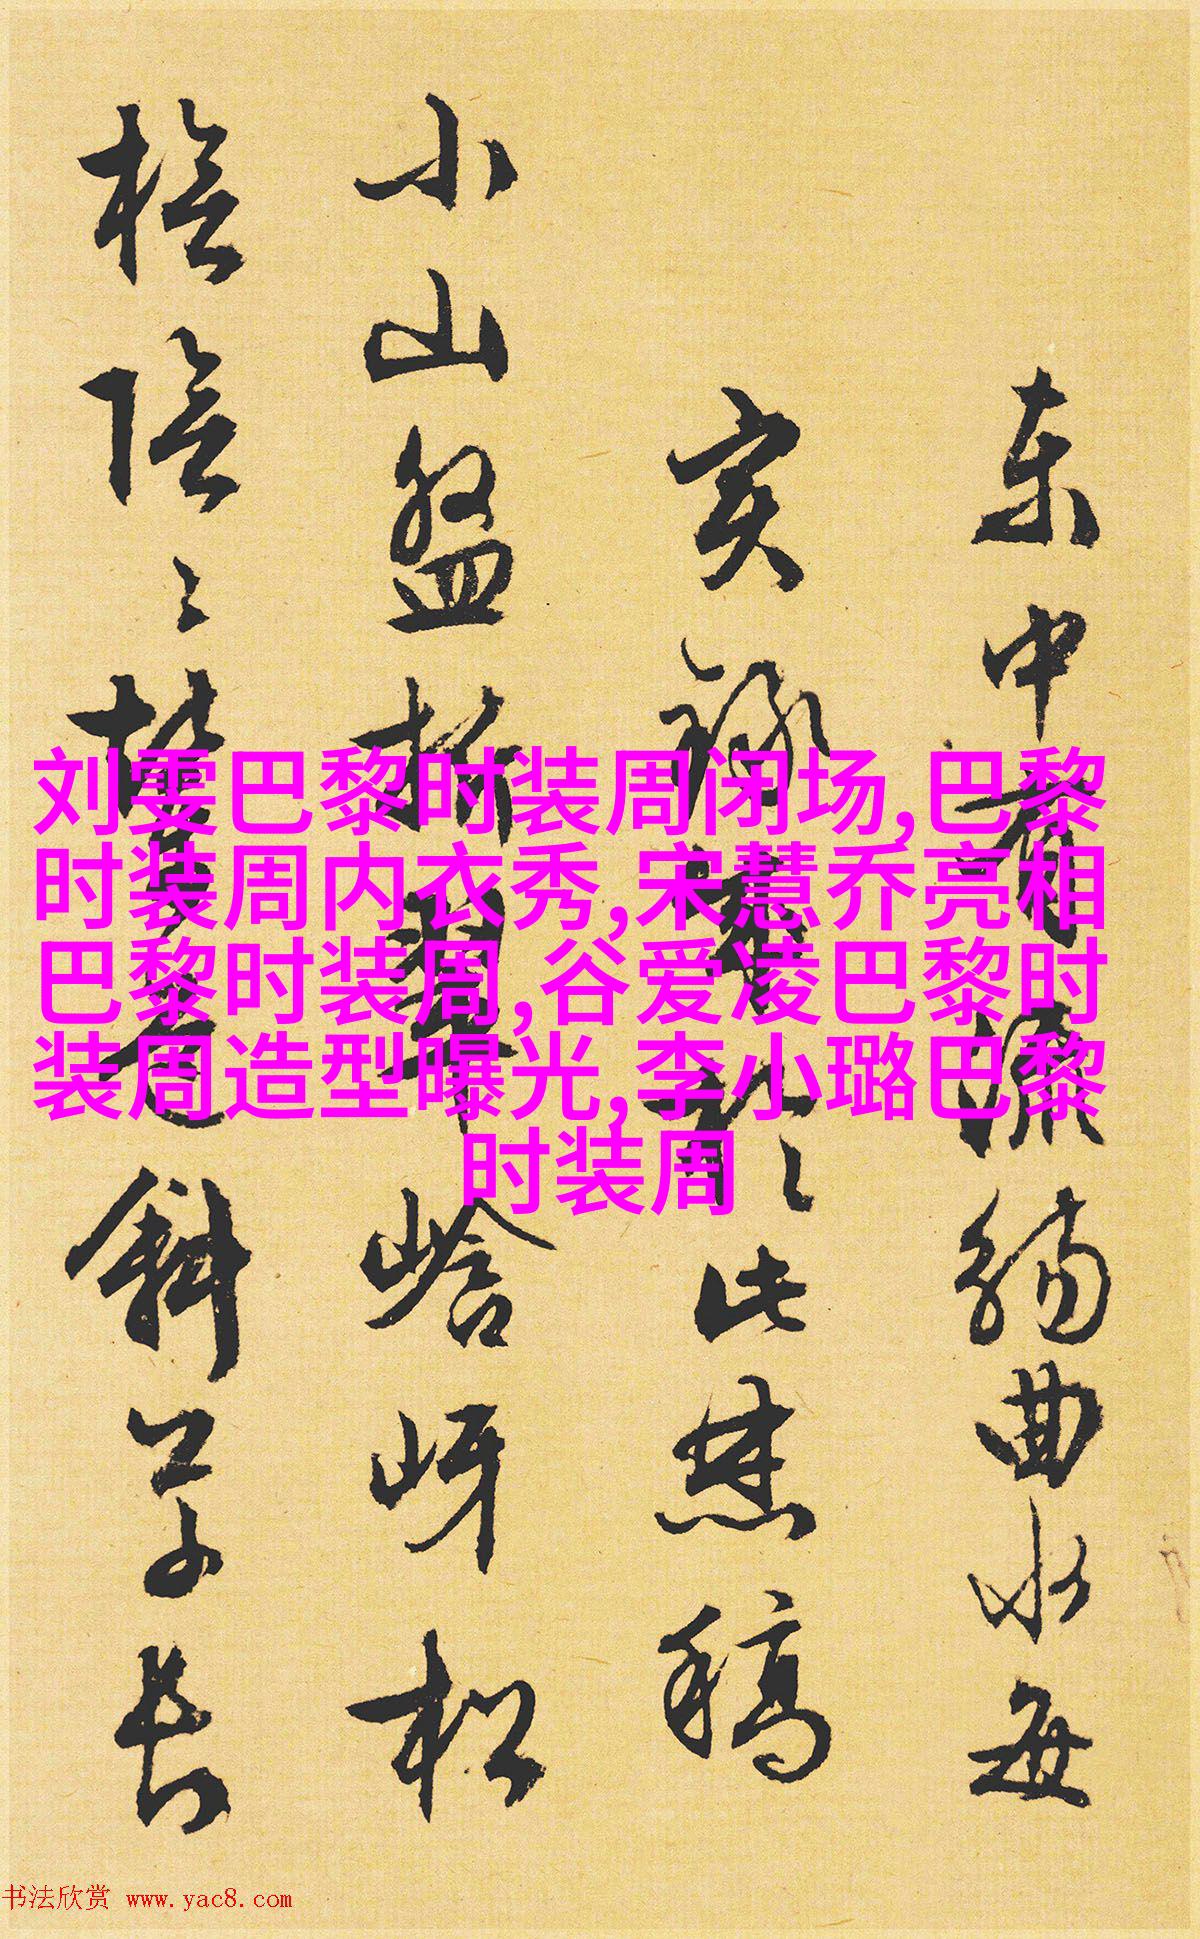 东中有流觞曲水每
亥秽 此焚稿
小山盘折翠 峆岈松
桧阴〻 斜草长
刘雯巴黎时装周闭场,巴黎
时装周内衣秀,宋慧乔亮相
巴黎时装周,谷爱凌巴黎时
装周造型曝光,李小璐巴黎
时装周
书法欣赏 www.yac8.com